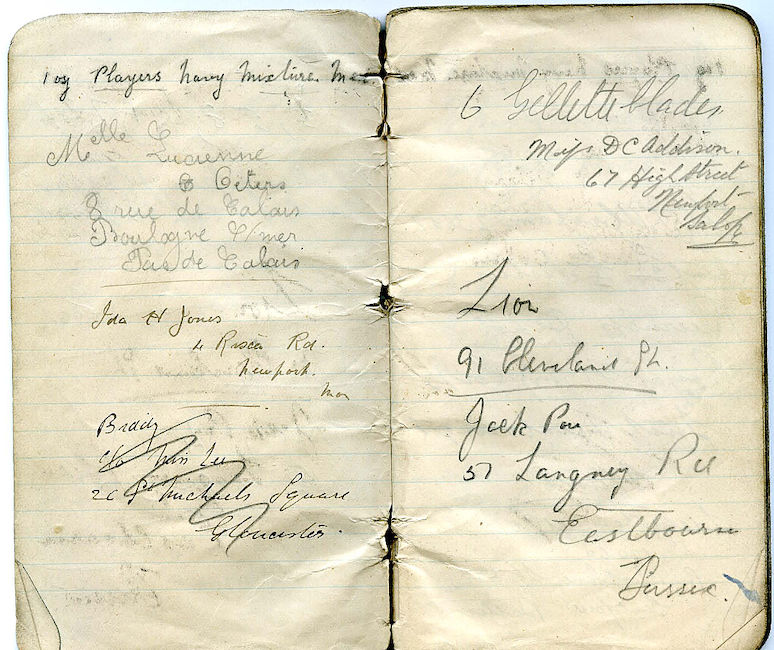 1 oz Players Navy Mixture.
Melle
Lucienne
8 rue de Calais
Boulogne s/mer
Pas de Calais
Ida H Jones
4 Risca Rd.
Newport.
Mon
Biddy
c/o Miss Lee
26 St Michaels Square
Gloucester.
6 Gillette blades
Miss DC Addison.
67 High Street
Newport
Salop
Lion
91 Cleveland St.
Jack
51 Langney Rd
Eastbourne
Sussex.